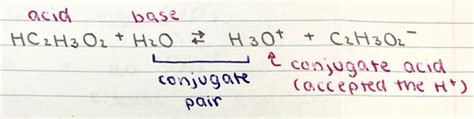 acid base
HC₂H₃O₂ + H₂O ⇄ H₃O⁺ + C₂H₃O₂⁻
conjugate pair
↑ conjugate acid
(accepted the H⁺)